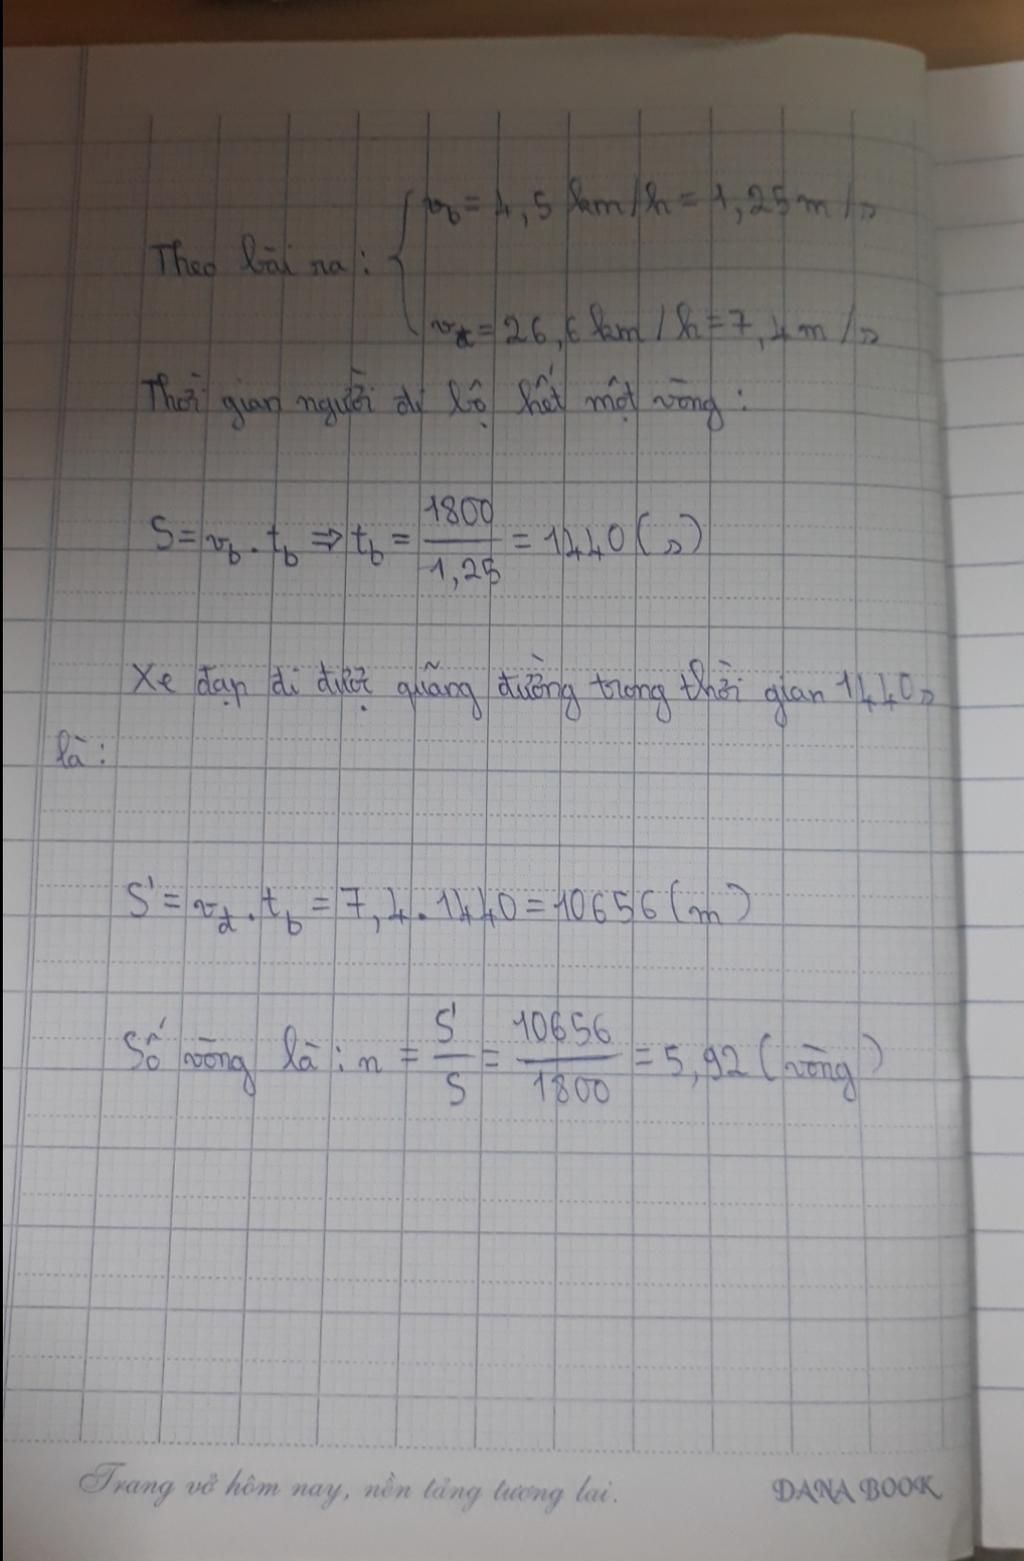 Theo bài ra: { v_b = 4,5 km/h = 1,25 m/s
v_đ = 26,6 km/h = 7,4 m/s
Thời gian người đi bộ hết một vòng:
S = v_b . t_b ⇒ t_b = 1800/1,25 = 1440 (s)
Xe đạp đi được quãng đường trong thời gian 1440s
là:
S' = v_đ . t_b = 7,4 . 1440 = 10656 (m)
Số vòng là: n = S'/S = 10656/1800 = 5,92 (vòng)
Trang vở hôm nay, nền tảng tương lai.
DANA BOOK